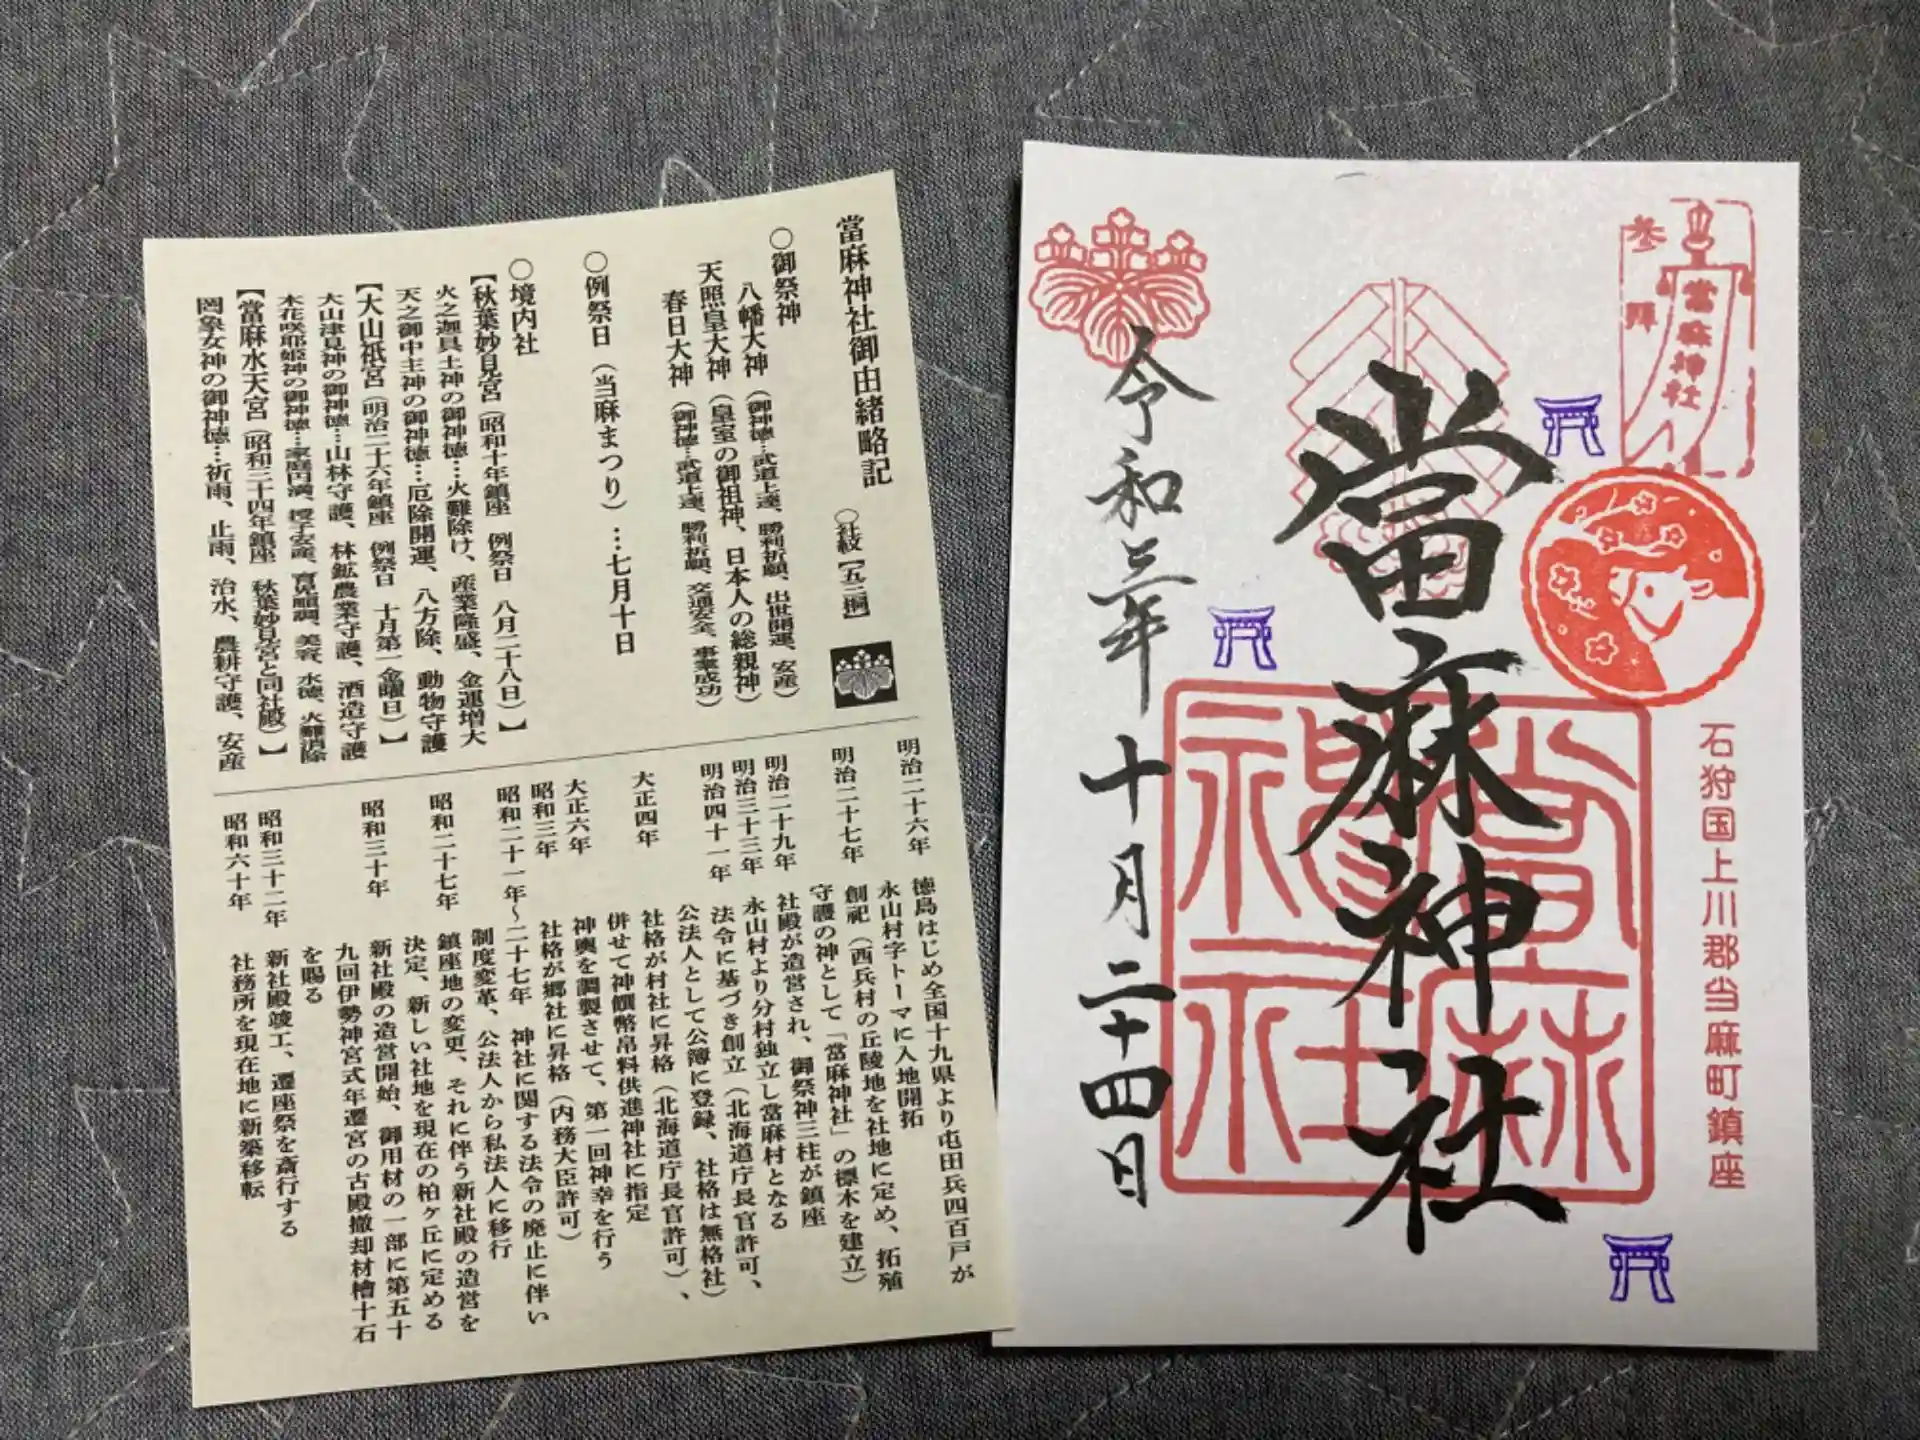 當麻神社御由緒略記
○社紋【五三桐】
○御祭神
八幡大神（御神徳…武道上達、勝利祈願、出世開運、安産）
天照皇大神（皇室の御祖神、日本人の総親神）
春日大神（御神徳…武道上達、勝利祈願、交通安全、事業成功）
○例祭日（当麻まつり）…七月十日
○境内社
【秋葉妙見宮（昭和十年鎮座 例祭日 八月二十八日）】
火之迦具土神の御神徳…火難除け、産業隆盛、金運増大
天之御中主神の御神徳…厄除開運、八方除、動物守護
【大山祇宮（明治二十六年鎮座 例祭日 十月第一金曜日）】
大山津見神の御神徳…山林守護、林鉱農業守護、酒造守護
木花咲耶姫神の御神徳…家庭円満、授子安産、育児順調、美容、水徳、火難消除
【當麻水天宮（昭和三十四年鎮座 秋葉妙見宮と同社殿）】
罔象女神の御神徳…祈雨、止雨、治水、農耕守護、安産
明治二十六年 徳島はじめ全国十九県より屯田兵四百戸が
永山村字トーマに入地開拓
明治二十七年 創祀（西兵村の丘陵地を社地に定め、拓殖
守護の神として「當麻神社」の標木を建立）
明治二十九年 社殿が造営され、御祭神三柱が鎮座
明治三十三年 永山村より分村独立し當麻村となる
明治四十一年 法令に基づき創立（北海道庁長官許可、
公法人として公簿に登録、社格は無格社）
大正四年 社格が村社に昇格（北海道庁長官許可）、
併せて神饌幣帛料供進神社に指定
大正六年 神輿を調製させて、第一回神幸を行う
昭和三年 社格が郷社に昇格（内務大臣許可）
昭和二十一年～二十七年 神社に関する法令の廃止に伴い
制度変革、公法人から私法人に移行
昭和二十七年 鎮座地の変更、それに伴う新社殿の造営を
決定、新しい社地を現在の柏ヶ丘に定める
昭和三十年 新社殿の造営開始、御用材の一部に第五十
九回伊勢神宮式年遷宮の古殿撤却材檜十石
を賜る
昭和三十二年 新社殿竣工、遷座祭を斎行する
昭和六十年 社務所を現在地に新築移転
参拝
當麻神社
石狩国上川郡当麻町鎮座
當麻神社
當麻神社
令和三年十月二十四日